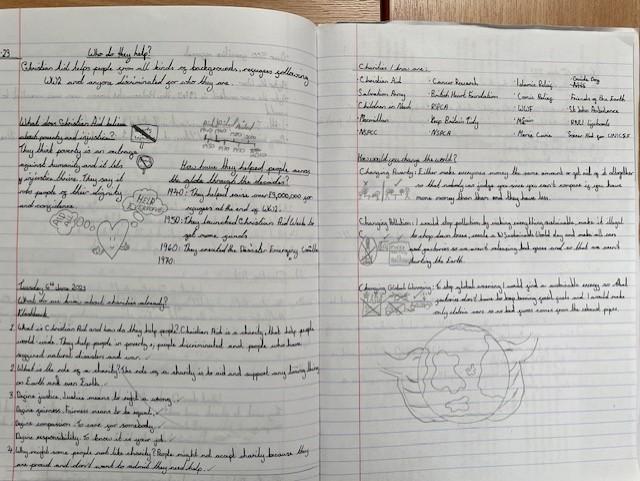 23
Who do they help?
Christian Aid helps people from all kinds of backgrounds, refugees following
WW2 and anyone discriminated for who they are.
What does Christian Aid believe
about poverty and injustice?
They think poverty is an outrage
against humanity and it
injustice thrive. They say it
robs people of their dignity
and confidence
HELP EVERYONE!
How have they helped people across
the globe through the decades?
1940: They helped raise over £3,000,000 for
refugees at the end of WW2.
1950: They launched Christian Aid Week to
get more funds
1960: They created the Disaster Emergency
1970:
Tuesday 6th June 2023
What do we know about charities already?
1. What is Christian Aid and how do they help people? Christian Aid is a charity that help people
world wide. They help people in poverty, people discriminated and people who have
suffered natural disasters and war.
2. What is the role of a charity? The role of a charity is to aid and support any living thing
on Earth and even Earth.
3. Define justice. Justice means to right a wrong.
Define fairness. Fairness means to be equal.
Define compassion. To care for somebody.
Define responsibility. To know it is your job.
4. Why might some people not like charity? People might not accept charity because they
are proud and don't want to admit they need help.
Charities I know are:
Christian Aid
Cancer Research
Islamic Relief
Salvation Army
British Heart Foundation
Comic Relief
Friends of the Earth
Children in Need
RSPCA
WWF
St John Ambulance
Macmillan
Keep Britain Tidy
Mind
RNLI lifeboats
NSPCC
NSPCA
Marie Curie
Soccer Aid for UNICEF
How would you change the world?
Changing Poverty: Either make everyone's money the same amount or get rid of it altogether
so that nobody can judge you since you can't compare if you have
more money than them and they have less.
Changing Pollution: I would stop pollution by making everything sustainable, make it illegal
to chop down trees, make a
and factories so we aren't releasing bad gases and so that we aren't
the Earth.
Changing Global Warming: To stop global warming I would find a sustainable energy so that
factories don't have to keep burning fossil fuels and I would make
only electric cars so no bad gases comes from the exhaust pipes.